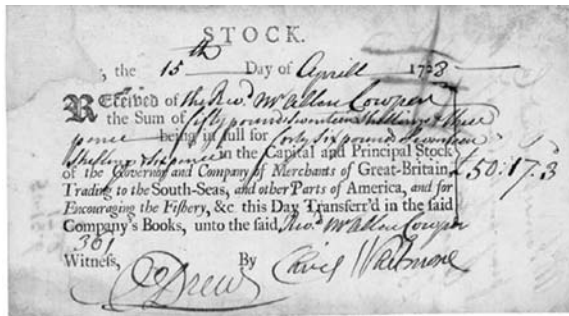 STOCK.
, the 15th Day of Aprill 1728
REceived of the Revd. Mr Allen Cowper
the Sum of fifty pounds Seventeen Shillings & three
pence being in full for forty Six pounds Seventeen
Shillings & Six pence in the Capital and Principal Stock
of the Governor and Company of Merchants of Great-Britain, £50:17.3
Trading to the South-Seas, and other Parts of America, and for
Encouraging the Fishery, &c. this Day Transferr'd in the said
Company's Books, unto the said Revd. Mr Allen Cowper
361
Witness, By
Drew